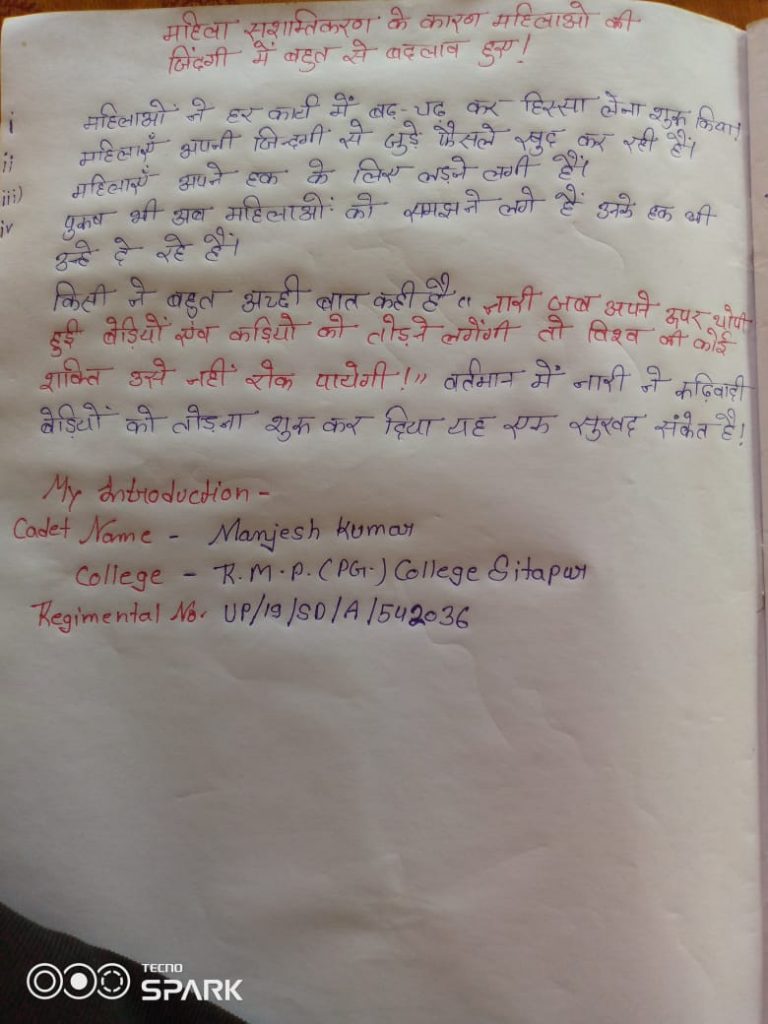 महिला सशक्तिकरण के कारण महिलाओ की
जिंदगी में बहुत से बदलाव हुए!
i महिलाओं ने हर कार्य में बढ़-चढ़ कर हिस्सा लेना शुरू किया!
ii महिलाएँ अपनी जिन्दगी से जुड़े फैसले खुद कर रही हैं।
iii) महिलाएँ अपने हक के लिए लड़ने लगी हैं।
iv पुरुष भी अब महिलाओं को समझने लगे हैं उनके हक भी
उन्हे दे रहे हैं।
किसी ने बहुत अच्छी बात कही है "नारी जब अपने ऊपर थोपी
हुई बेड़ियों एंव कड़ियो को तोड़ने लगेंगी तो विश्व की कोई
शक्ति उसे नहीं रोक पायेगी!" वर्तमान में नारी ने रूढ़िवादी
बेड़ियों को तोड़ना शुरू कर दिया यह एक सुखद संकेत है!
My Introduction -
Cadet Name - Manjesh Kumar
College - R.M.P. (PG.) College Sitapur
Regimental No. UP/19/SD/A/542036
TECNO
SPARK